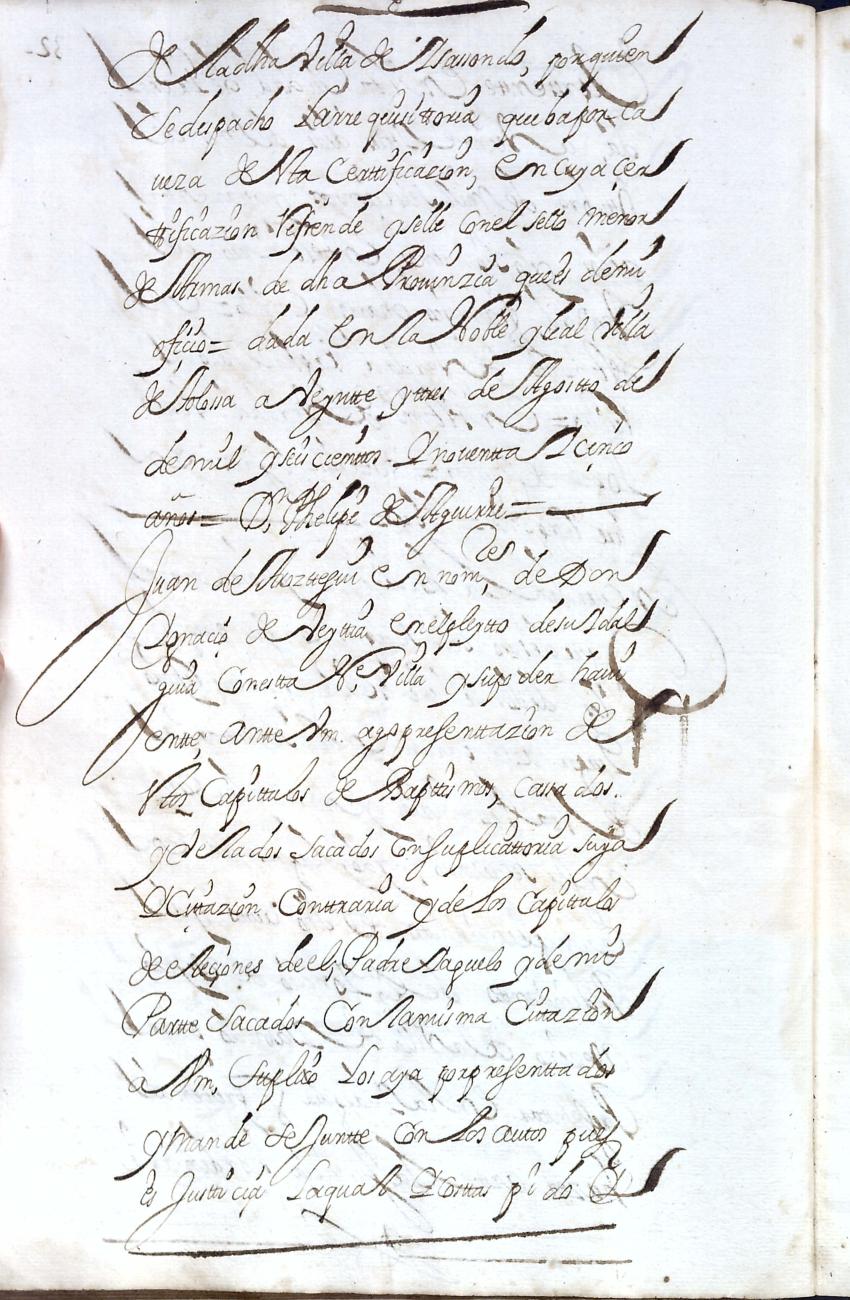 de la dha Villa de Elsasondo, por quien
se despacho La rrequisittoria que ba por ca
veza de Vta Certtificazion, en cuya cer
ttificazion Refrende y selle con el sello menor
de Armas de dha Provinzia que es de mi
ofiçio= dada en la Noble y leal Villa
de Tolossa a Veyntte y ttres de Agostto de
de mil y seis cienttos y noventta y cinco
años= Dn Phelipe de Aguirre=
Juan de Aroztegui en nomres de Don
Ygnacio de Veytia en el pleytto de su Ydal
guia con estta Ne Villa y su poder havi
entte, antte Vm. ago presenttazion de
Vtos Capittulos de Bapttismos, cassados.
y Velados sacados con suplicattoria suya
y Cittazion Conttraria y de los Capittulos
de eleçiones de el, Padre y Aguelo y de mi
Partte sacados Con la misma Cittazion
a Vm, Suplico Los aya por presenttados
y mande se Juntte con los autos pues
es Justtiçia La qual y Costtas pido &